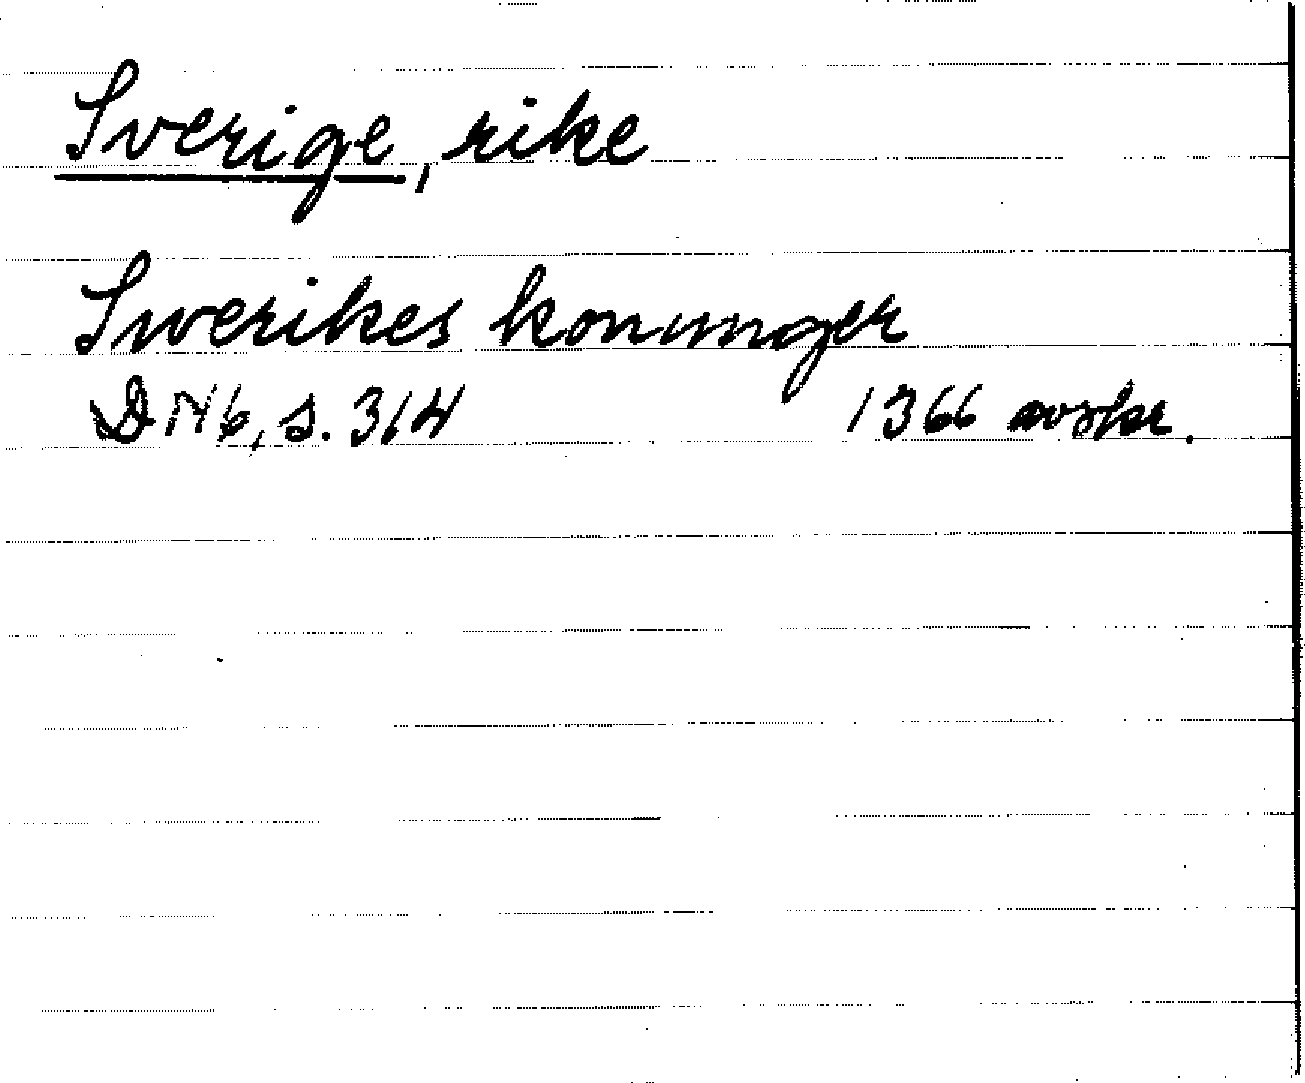 Sverige, rike
Swerikes konunger
DN6, s. 314 1366 avskr.